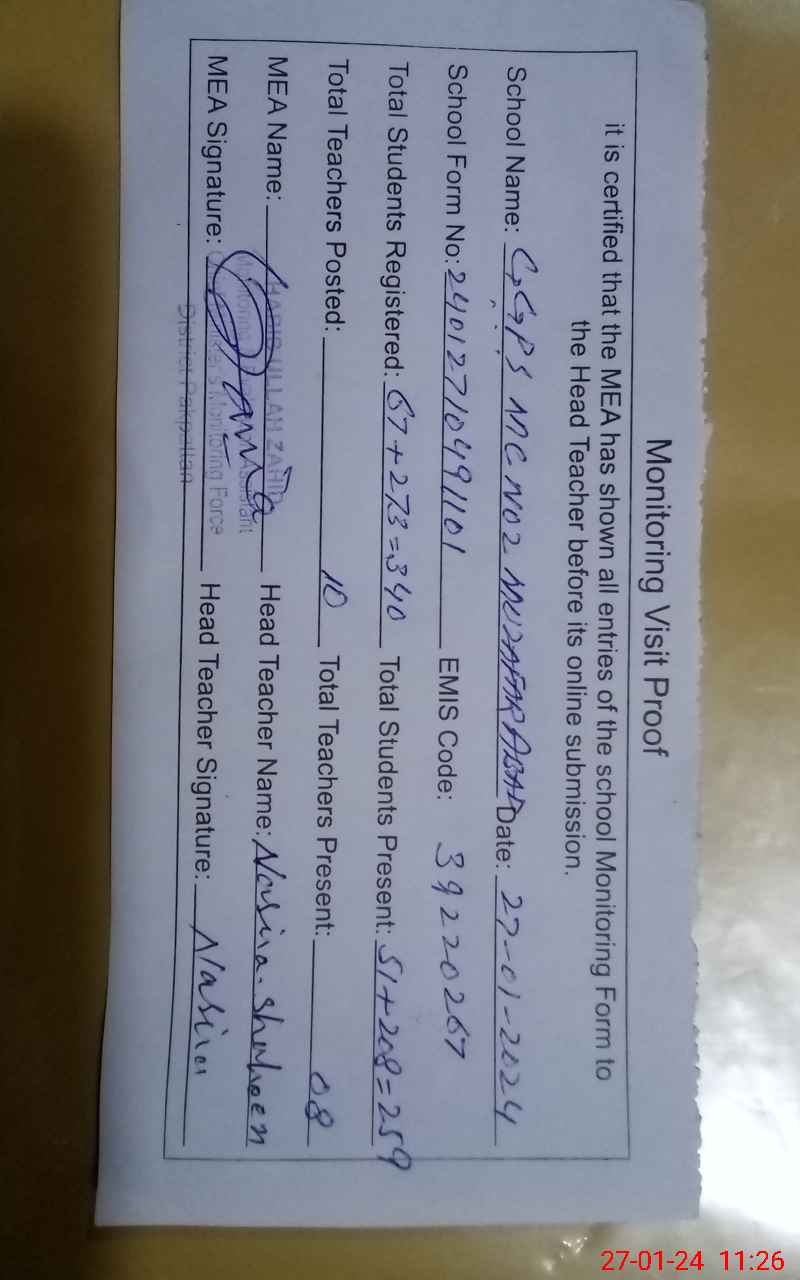 Monitoring Visit Proof
it is certified that the MEA has shown all entries of the school Monitoring Form to
the Head Teacher before its online submission.
School Name: GGPS MC NO2 MUZAFFAR ABAD Date: 27-01-2024
School Form No: 24012710491101 EMIS Code: 39220267
Total Students Registered: 67+273=340 Total Students Present: 51+208=259
Total Teachers Posted: 10 Total Teachers Present: 08
MEA Name: ULLAH ZAHID Head Teacher Name: Nasira Shaheen
MEA Signature: Monitoring Force Head Teacher Signature: Nasira
District Pakpattan
27-01-24 11:26